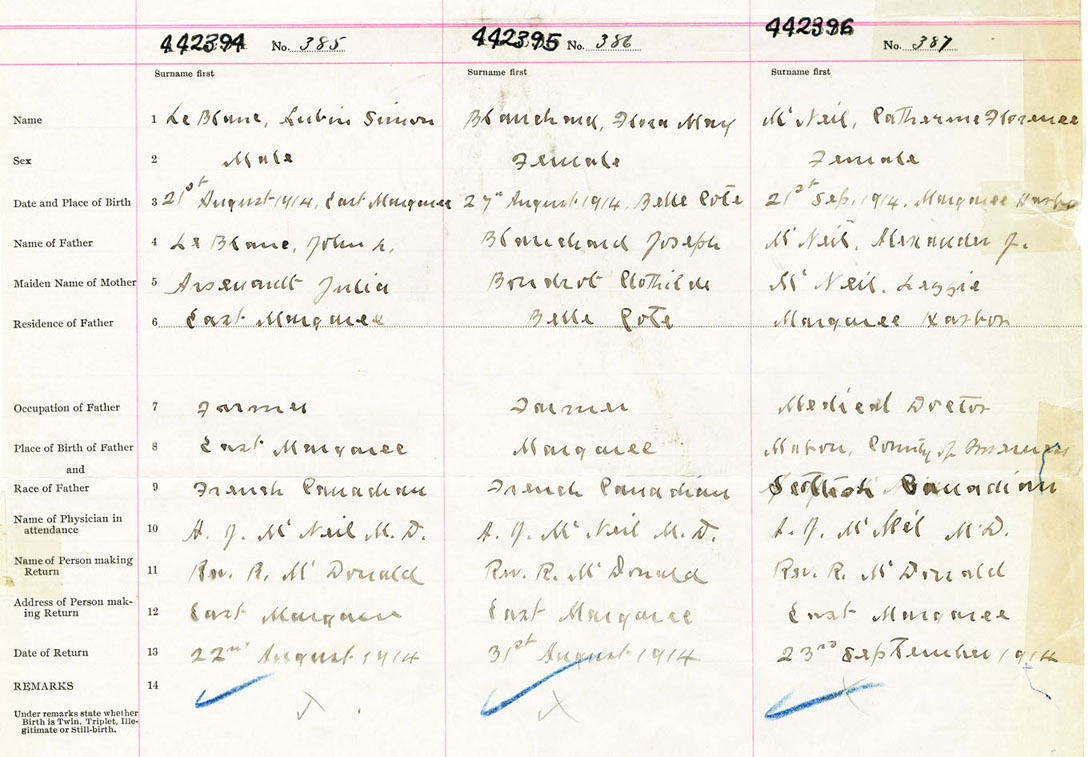 442394 No. 385 442395 No. 386 442396 No. 387
Surname first Surname first Surname first
Name 1 Le Blanc, Lubin Simon Blanchard, Flora May Mc Neil, Catherine Florence
Sex 2 Male Female Female
Date and Place of Birth 3 21st August 1914, East Margaree 27th August 1914, Belle Cote 21st Sep. 1914, Margaree Harbor
Name of Father 4 Le Blanc, John L. Blanchard Joseph Mc Neil, Alexander J.
Maiden Name of Mother 5 Arsenault Julia Boudrot Clothilde Mc Neil, Lizzie
Residence of Father 6 East Margaree Belle Cote Margaree Harbor
Occupation of Father 7 Farmer Farmer Medical Doctor
Place of Birth of Father 8 East Margaree Margaree Mabou, County of Inverness
and
Race of Father 9 French Canadian French Canadian Scottish Canadian
Name of Physician in
attendance 10 A. J. Mc Neil M.D. A. J. Mc Neil M.D. A. J. Mc Neil M.D.
Name of Person making
Return 11 Rev. R. Mc Donald Rev. R. Mc Donald Rev. R. Mc Donald
Address of Person mak-
ing Return 12 East Margaree East Margaree East Margaree
Date of Return 13 22nd August 1914 31st August 1914 23rd September 1914
REMARKS 14
Under remarks state whether
Birth is Twin, Triplet, Ille-
gitimate or Still-birth.